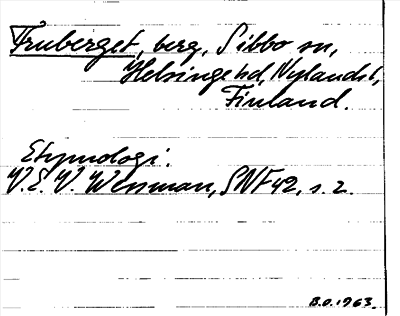 Fruberget, berg, Sibbo sn,
Helsinge hd, Nylands l,
Finland.
Etymologi.
V.E.V. Wessman, SNF 42, s. 2.
B.O. 1963.